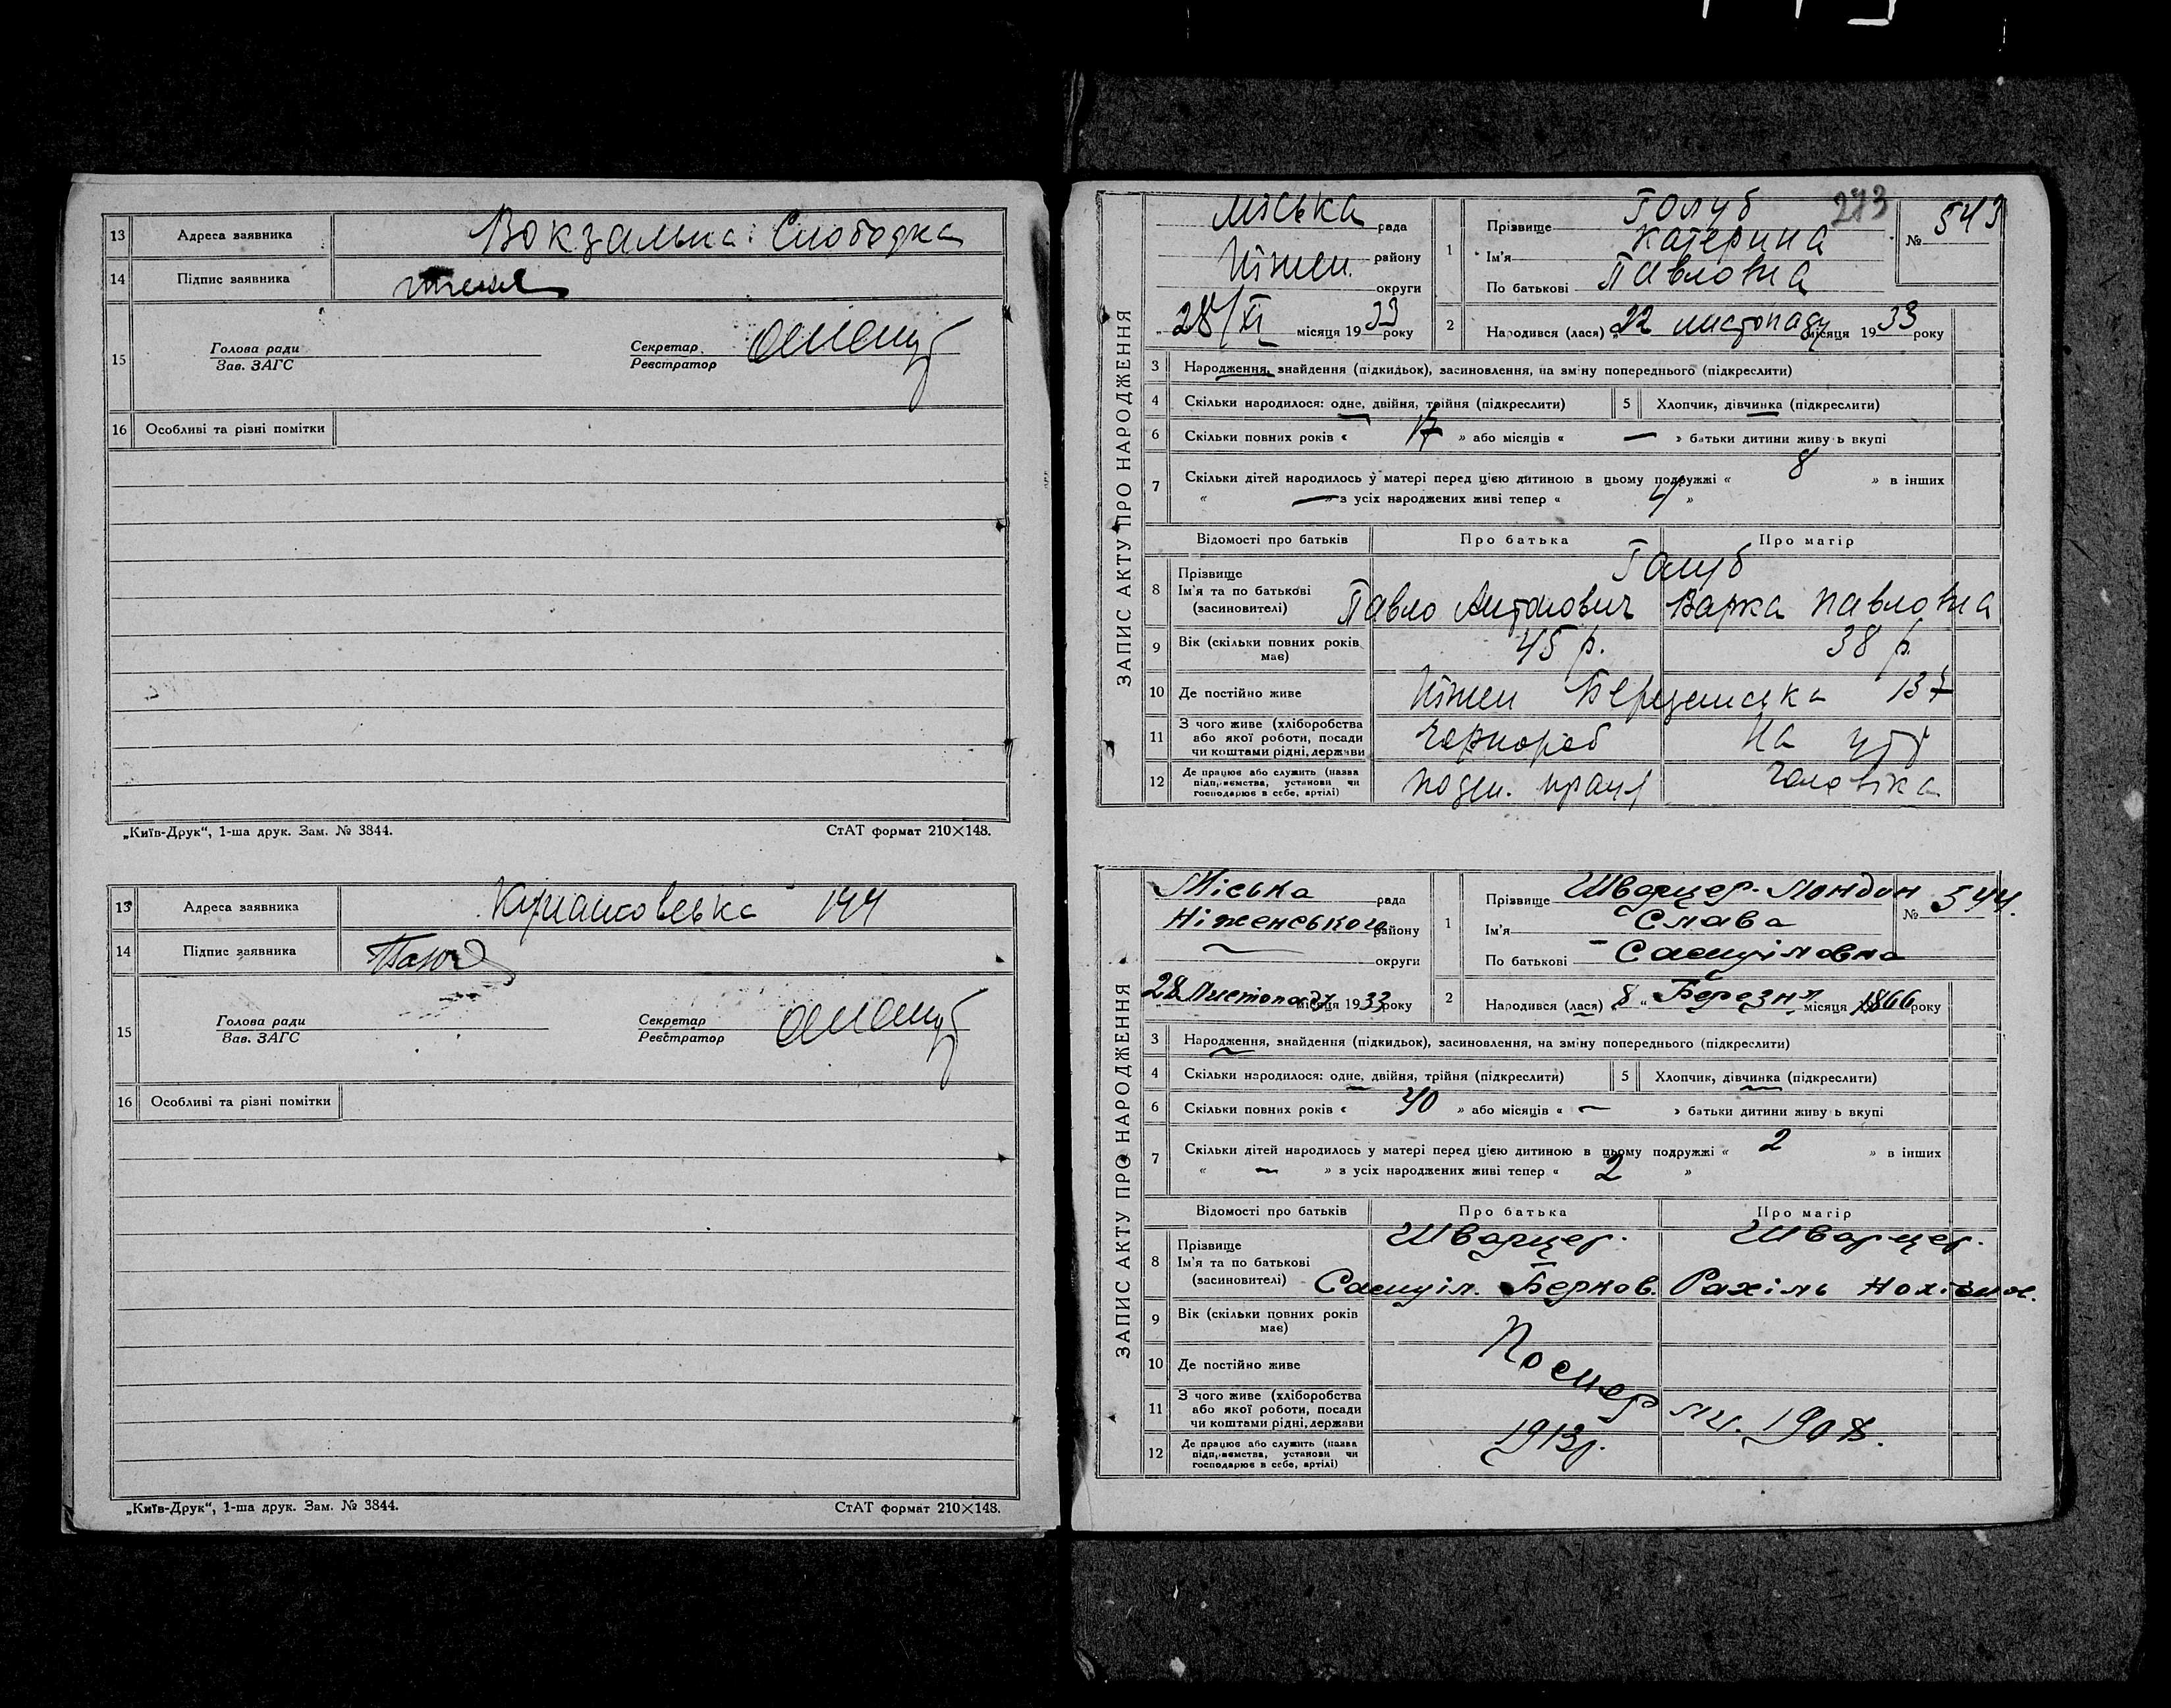 13 Адреса заявника Вокзальна Слободка
14 Підпис заявника
15 Голова ради Секретар
Зав. ЗАГС Реєстратор
16 Особливі та різні помітки
„Київ-Друк“, 1-ша друк. Зам. № 3844. СтАТ формат 210×148.
13 Адреса заявника 144
14 Підпис заявника
15 Голова ради Секретар
Зав. ЗАГС Реєстратор
16 Особливі та різні помітки
„Київ-Друк“, 1-ша друк. Зам. № 3844. СтАТ формат 210×148.
273
ЗАПИС АКТУ ПРО НАРОДЖЕННЯ
міська рада
Ніжен. району
округи
28/XI місяця 1933 року
1 Прізвище Голуб № 543
Ім'я Катерина
По батькові Павловна
2 Народився (лася) „22 листопаду місяця 1933 року
3 Народження, знайдення (підкидьок), засиновлення, на зміну попереднього (підкреслити)
4 Скільки народилося: одне, двійня, трійня (підкреслити) 5 Хлопчик, дівчинка (підкреслити)
6 Скільки повних років « 17 » або місяців « — » батьки дитини живуть вкупі
7 Скільки дітей народилось у матері перед цією дитиною в цьому подружжі « 8 » в інших
« — » з усіх народжених живі тепер « 4 »
Відомості про батьків Про батька Про матір
8 Прізвище Голуб
Ім'я та по батькові Павло Антонович Варка Павловна
(засновителі)
9 Вік (скільки повних років має) 45 р. 38 р.
10 Де постійно живе Ніжен 137
11 З чого живе (хліборобства або якої роботи, посади чи коштами рідні, держави Чорнороб На утр
12 Де працює або служить (назва підприємства, установи чи господарює в себе, артілі) поден. праця чоловіка
ЗАПИС АКТУ ПРО НАРОДЖЕННЯ
Міська рада
Ніженського району
округи
28 Листопаду місяця 1933 року
1 Прізвище Шварцер-Лондон № 544.
Ім'я Слава
По батькові Самуіловна
2 Народився (лася) „8„ Березня місяця 1866 року
3 Народження, знайдення (підкидьок), засиновлення, на зміну попереднього (підкреслити)
4 Скільки народилося: одне, двійня, трійня (підкреслити) 5 Хлопчик, дівчинка (підкреслити)
6 Скільки повних років « 40 » або місяців « — » батьки дитини живуть вкупі
7 Скільки дітей народилось у матері перед цією дитиною в цьому подружжі « 2 » в інших
« — » з усіх народжених живі тепер « 2 »
Відомості про батьків Про батька Про матір
8 Прізвище Шварцер. Шварцер.
Ім'я та по батькові Самуіл. Берков. Рахіль
(засиновителі)
9 Вік (скільки повних років має)
10 Де постійно живе Помер
11 З чого живе (хліборобства або якої роботи, посади чи коштами рідні, держави
12 Де працює або служить (назва підприємства, установи чи господарює в себе, артілі) 1913р.